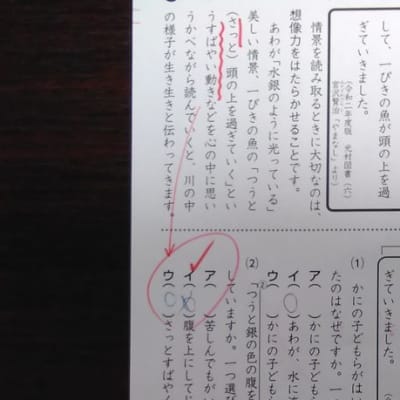 して、一ぴきの魚が頭の上を過
ぎていきました。
(令和二年度版 光村図書(六)
宮沢賢治「やまなし」より)
情景を読み取るときに大切なのは、
想像力をはたらかせることです。
あわが「水銀のように光っている」
美しい情景、一ぴきの魚の「つうと
(さっと)頭の上を過ぎていく」とい
うすばやい動きなどを心の中に思い
うかべながら読んでいくと、川の中
の様子が生き生きと伝わってきます。
ぎていきました。
(1) かにの子どもらがはい
たのはなぜですか。一
ア( )かにの子ども
イ(○)あわが、水に
ウ( )かにの子ども
(2) 「つうと銀の色の腹を
していますか。一つ選び
ア( )苦しんでもがい
イ( )腹を上にしてじ
ウ(○)さっとすばやく